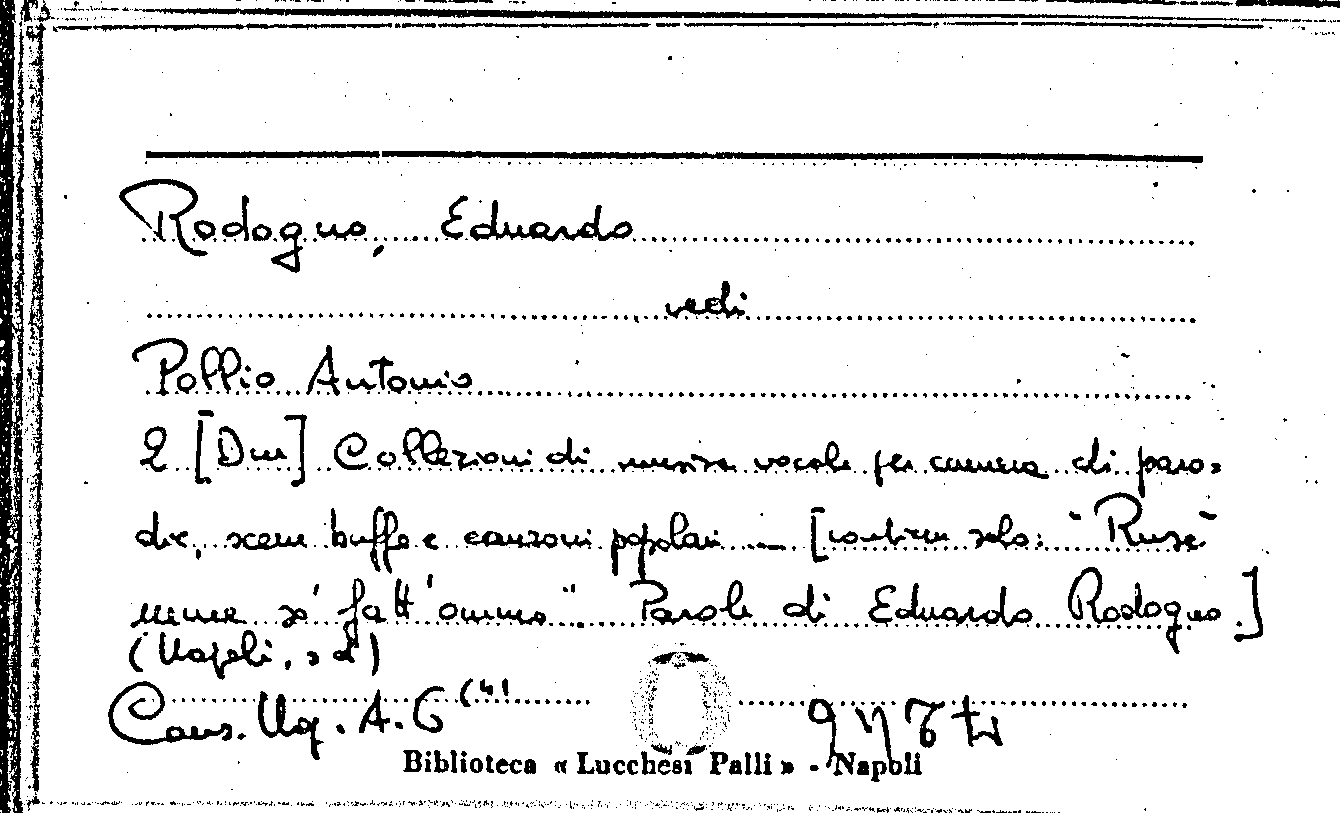 Rodogno, Eduardo
vedi
Pollio Antonio
2 [Dm] Collezioni di musica vocale per camera di paro=
die, scene buffe e canzoni popolari — [contiene solo: "Rusè"
meme sò fatt'ommo". Parole di Eduardo Rodogno.]
(Napoli, s d)
Cans. Nap. A. 6 (4)
Biblioteca « Lucchesi Palli » - Napoli